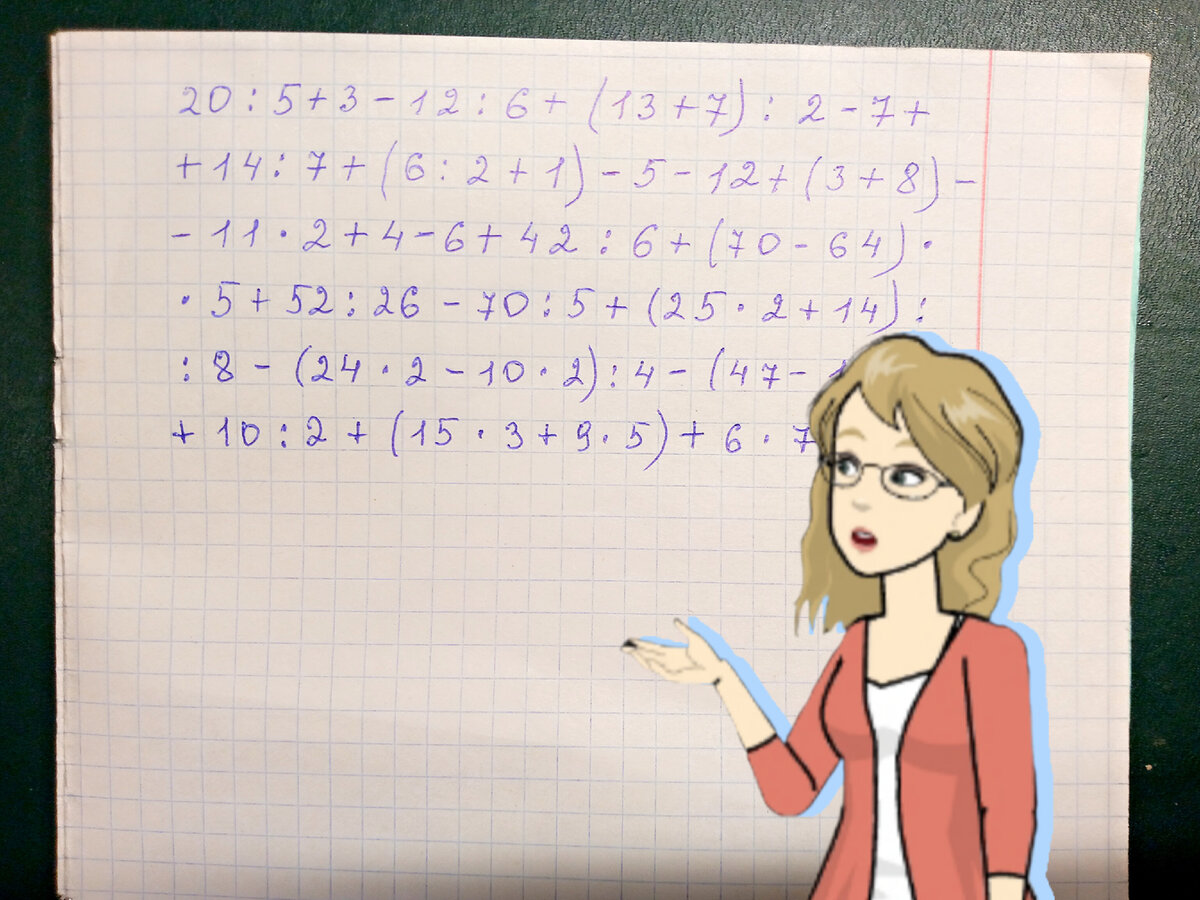 20 : 5 + 3 - 12 : 6 + (13 + 7) : 2 - 7 +
+ 14 : 7 + (6 : 2 + 1) - 5 - 12 + (3 + 8) -
- 11 · 2 + 4 - 6 + 42 : 6 + (70 - 64) ·
· 5 + 52 : 26 - 70 : 5 + (25 · 2 + 14) :
: 8 - (24 · 2 - 10 · 2) : 4 - (47 -
+ 10 : 2 + (15 · 3 + 9 · 5) + 6 · 7